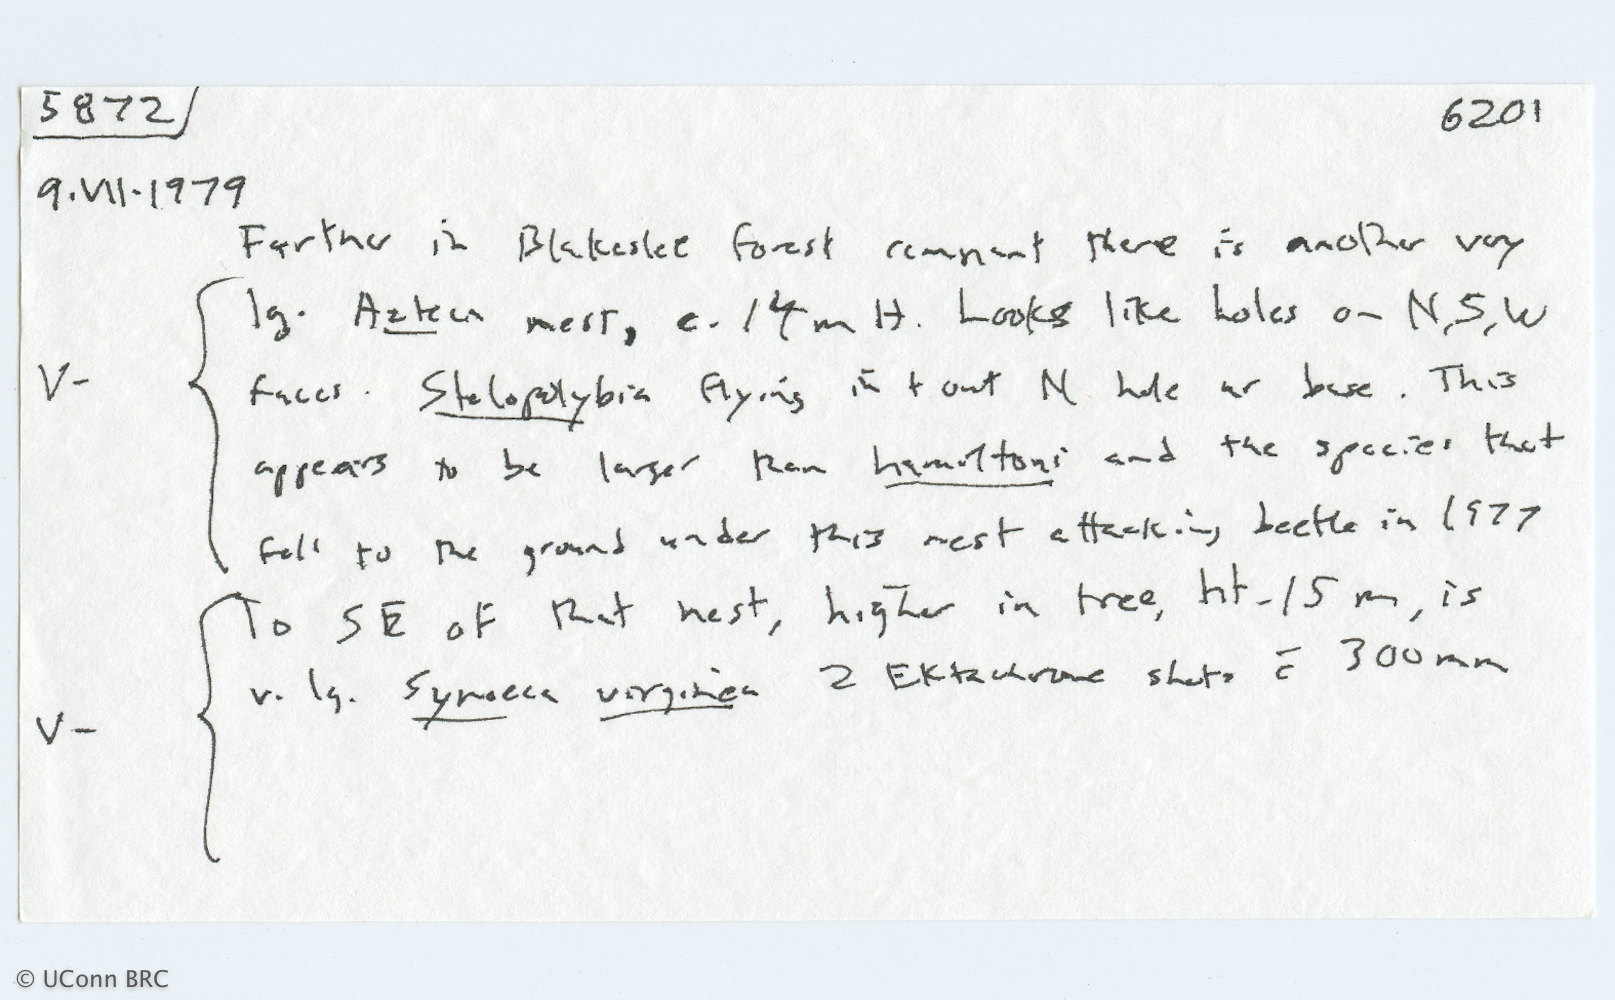 5872 6201
9.VII.1979
Farther in Blakeslee forest remnant there is another very
lg. Azteca nest, c. 14 m H. Looks like holes on N,S,W
V- faces. Stelopolybia flying in + out N hole nr base. This
appears to be larger than hamiltoni and the species that
fell to the ground under this nest attacking beetle in 1977
To SE of that nest, higher in tree, ht-15 m, is
v. lg. Synoeca virginea 2 Ektachrome shots c̄ 300mm
V-
© UConn BRC